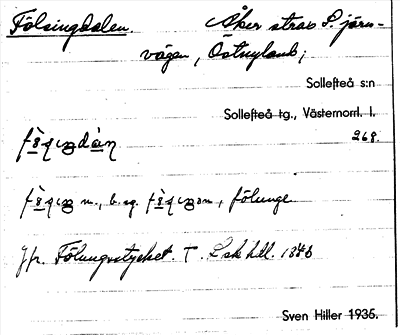 Fölsingdalen. Åker strax S. järn-
vägen, Östnyland;
Sollefteå s:n
Sollefteå tg., Västernorrl. l.
268.
m., b. sg. fölunge
Jfr. Fölungsstycket. T. Lsk hdl. 1846
Sven Hiller 1935.